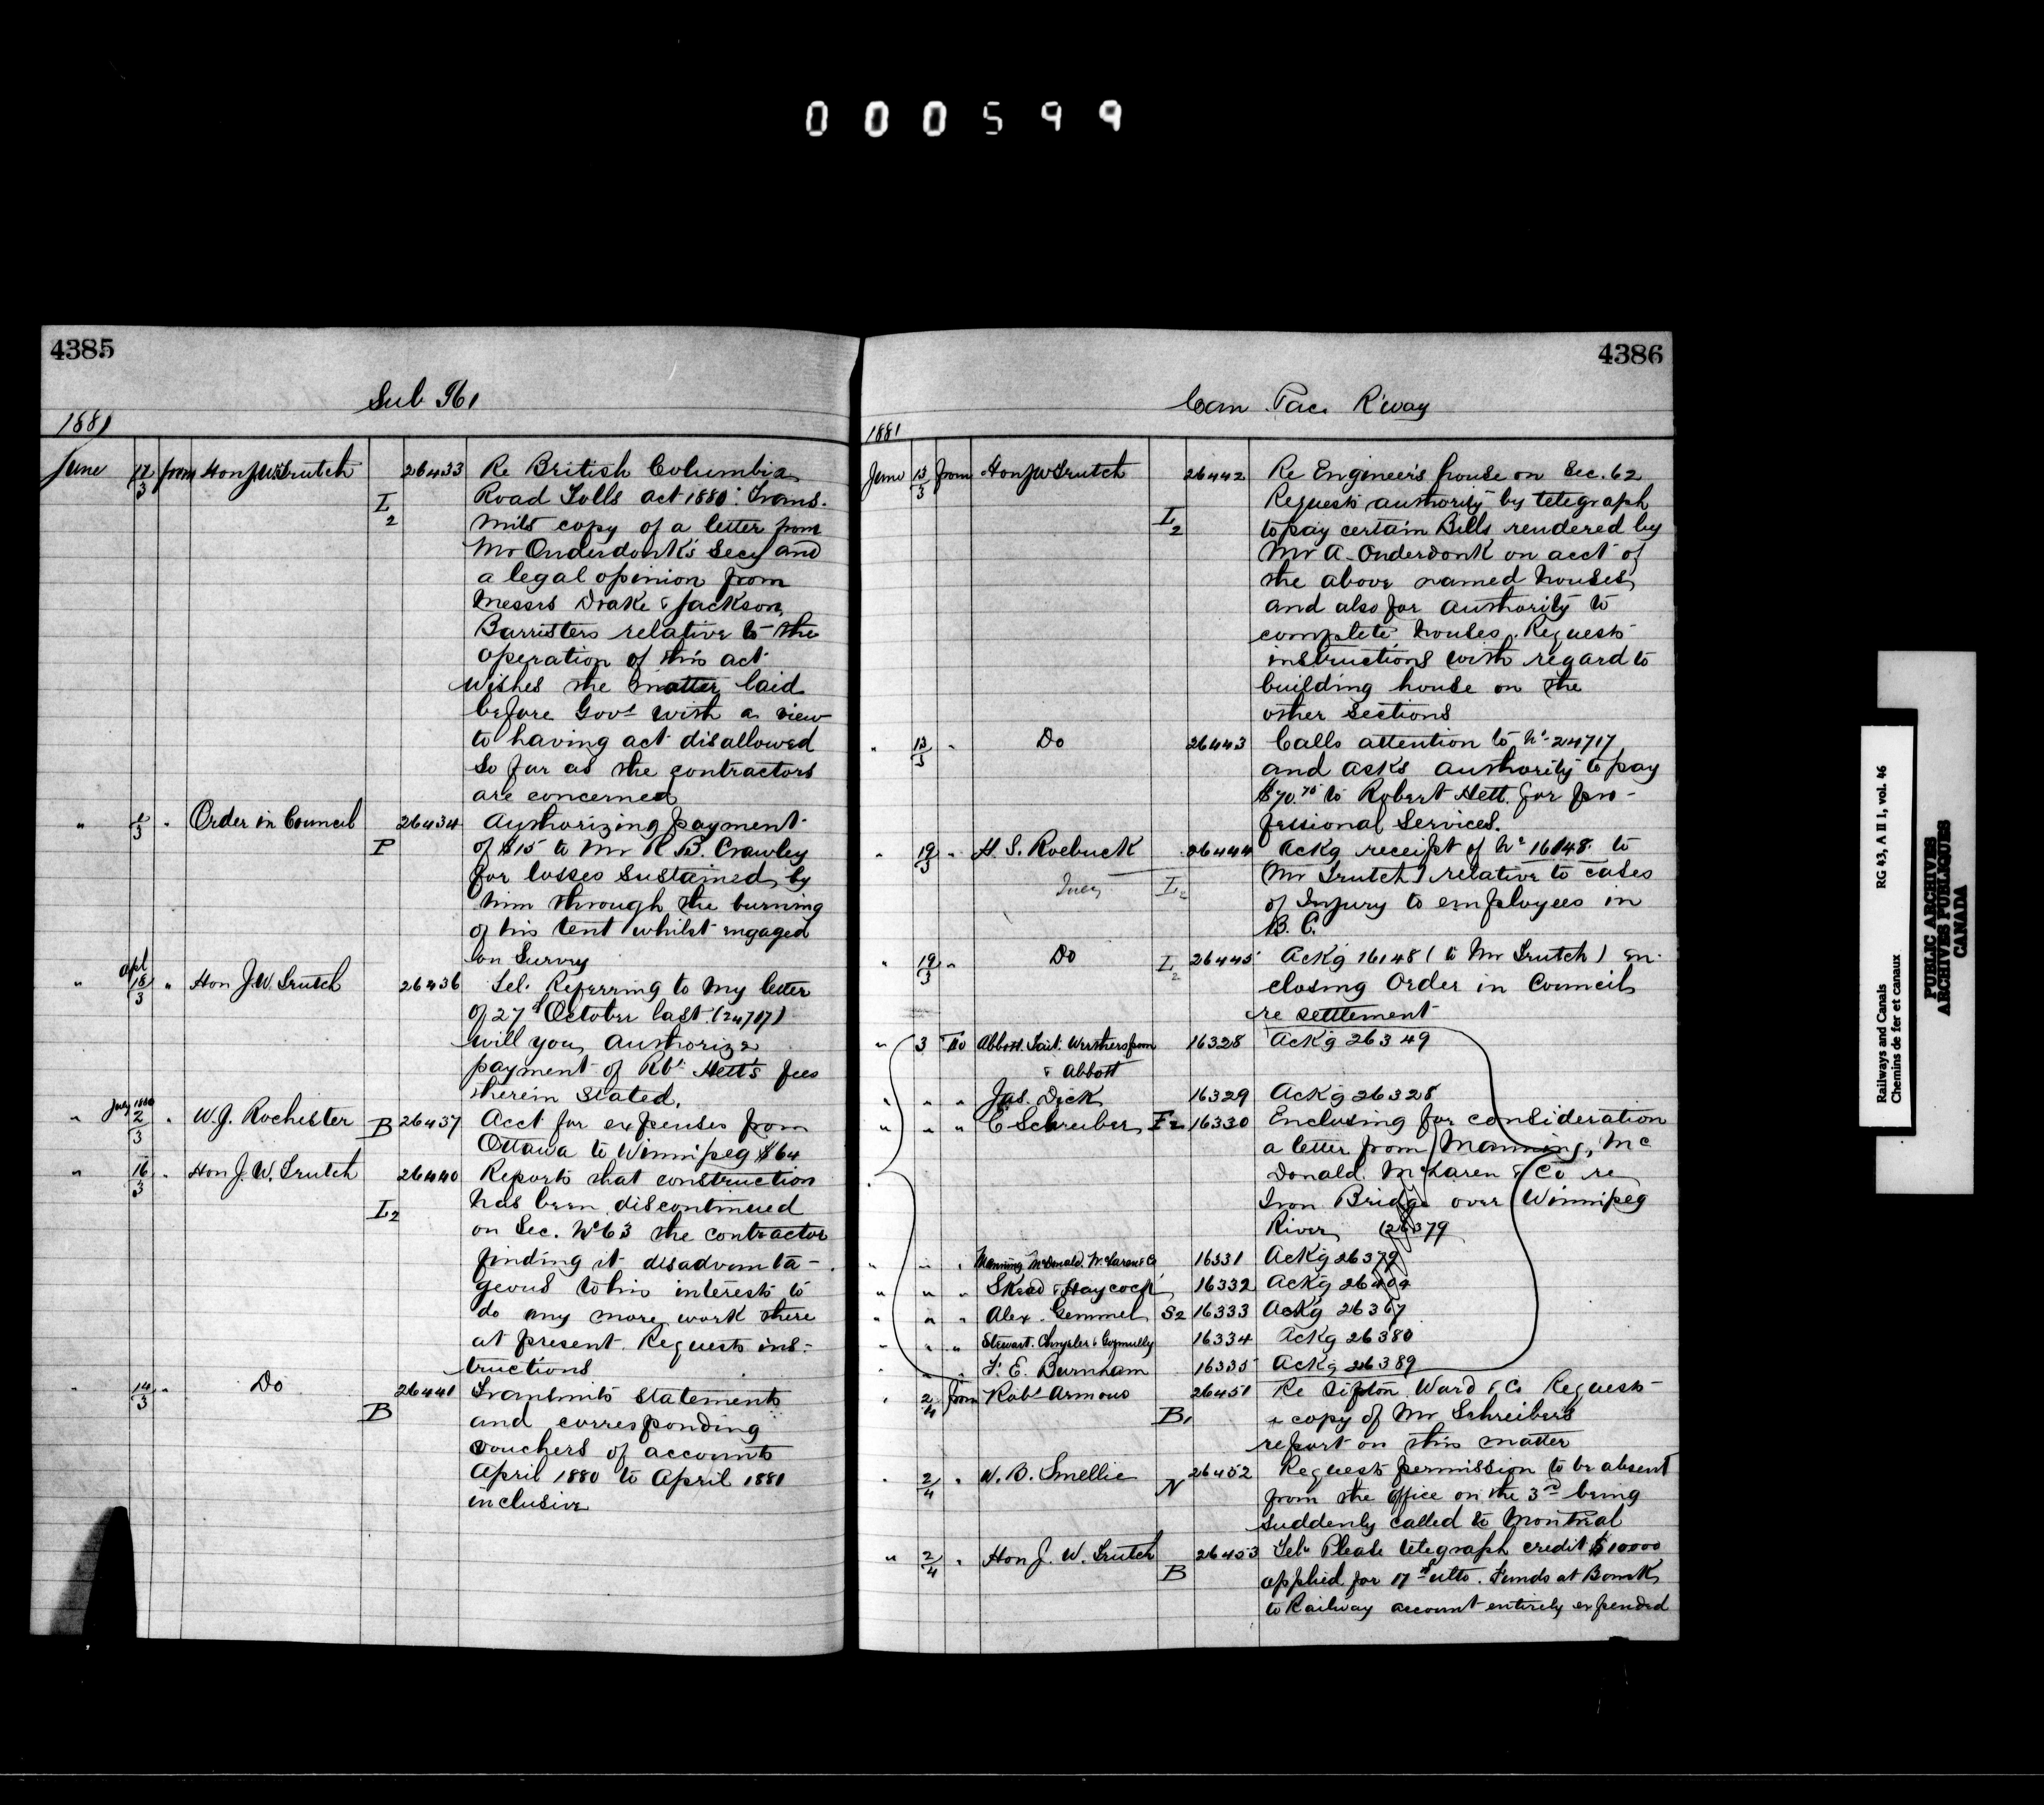 000599
4385
Sub 961
1881
June 17/3 from Hon J.W. Trutch 26433 Re British Columbia
Road Tolls act 1880. Trans-
I2
mits copy of a letter from
Mr Onderdonk's Secy and
a legal opinion from
Messrs Drake & Jackson,
Barristers relative to the
operation of this act
Wishes the matter laid
before Govt with a view
to having act disallowed
so far as the contractors
are concerned
" 1/3 " Order in Council 26434 Authorizing payment
P of $15 to Mr R B. Crawley
for losses sustained by
him through the burning
of his tent whilst engaged
on Survey
" Apl 18/3 " Hon J.W. Trutch 26436 Tel. Referring to my letter
of 27th October last (24717)
will you authorize
payment of Rbt Hett's fees
therein stated.
" July 1880 2/3 " W.J. Rochester B 26437 Acct for expenses from
Ottawa to Winnipeg $64
" 16/3 " Hon J.W. Trutch 26440 Reports that construction
I2 has been discontinued
on Sec. No 63 the contractor
finding it disadvanta-
geous to his interests to
do any more work there
at present. Requests ins-
tructions
" 14/3 " Do 26441 Transmits statements
B and corresponding
vouchers of accounts
April 1880 to April 1881
inclusive
4386
Can Pac. R'way
1881
June 13/3 from Hon J W Trutch 26442 Re Engineer's house on Sec. 62
Requests authority by telegraph
I2 to pay certain Bills rendered by
Mr A. Onderdonk on acct of
the above named houses,
and also for authority to
complete houses. Requests
instructions with regard to
building house on the
other sections
" 13/3 " Do 26443 Calls attention to No 24717
and asks authority to pay
$70.75 to Robert Hett for pro-
fessional Services.
" 19/3 " H. S. Roebuck 26444 Ackg receipt of No 16148 to
I2 Mr Trutch relative to cases
of Injury to employees in
B. C.
" 19/3 " Do I2 26445 Ackg 16148 (to Mr Trutch) en-
closing Order in Council
re settlement
" 3 To Abbott. Tait. Wotherspoon 16328 Ackg 26349
& Abbott
" " " Jas. Dick 16329 Ackg 26328
" " " C Schreiber I2 16330 Enclosing for consideration
a letter from Manning, Mc
Donald. McLaren & Co re
Iron Bridge over Winnipeg
River (26379
" " " Manning McDonald. McLaren & Co 16331 Ackg 26379
" " " Skead & Haycock 16332 Ackg 26404
" " " Alex. Gemmel S2 16333 Ackg 26367
" " " Stewart. Chrysler & Gormully 16334 Ackg 26380
" " F. E. Burnham 16335 Ackg 26389
" 2/4 from Robt Armour 26451 Re Sifton Ward & Co Requests
B1 a copy of Mr Schreibers
report on this matter
" 2/4 " W. B. Smellie 26452 Requests permission to be absent
N from the office on the 3rd being
suddenly called to Montreal
" 2/4 " Hon J. W. Trutch 26453 Tel. Please telegraph credit $10000
B applied for 17th ulto. Funds at Bank
to Railway account entirely expended
Railways and Canals RG 43, A II 1, vol. 46
Chemins de fer et canaux
PUBLIC ARCHIVES
ARCHIVES PUBLIQUES
CANADA